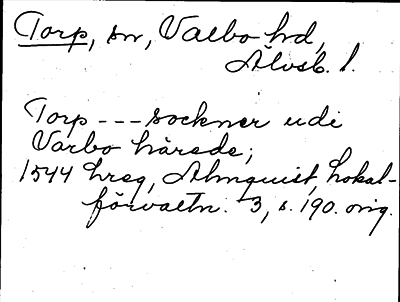 Torp, sn, Valbo hd,
Älvsb. l.
Torp --- sockner udi
Varbo härade;
1544 hreg, Almquist, Lokal-
förvaltn. 3, s. 190. orig.